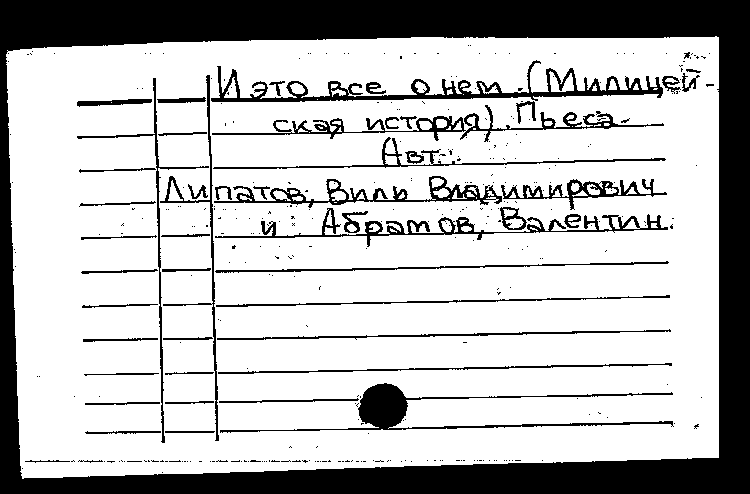 И это все о нем. (Милицей-
ская история). Пьеса.
Авт.:
Липатов, Виль Владимирович
и Абрамов, Валентин.